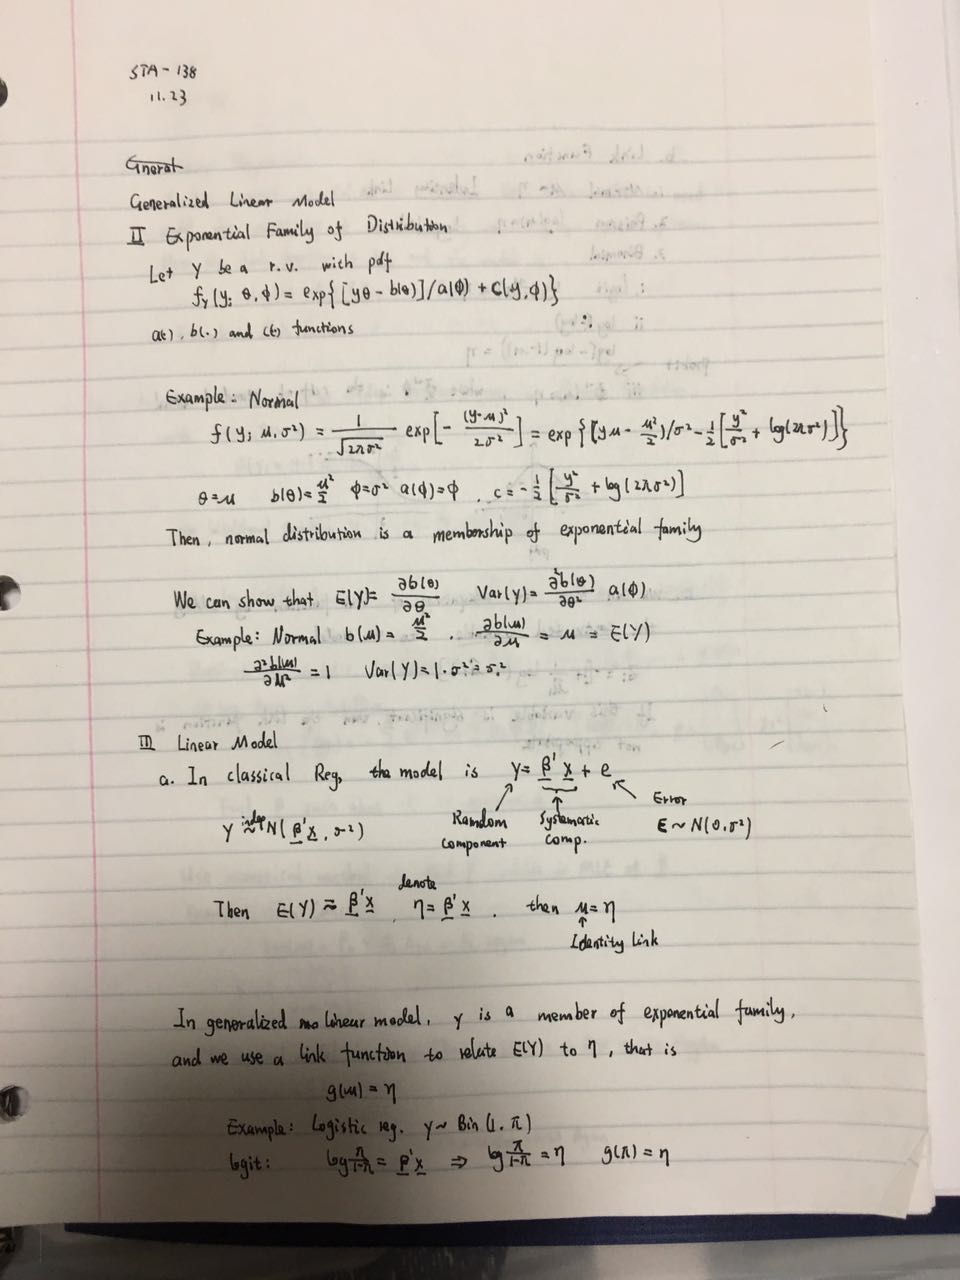 STA-138
11.23
Gneral
Generalized Linear Model
II Exponential Family of Distribution
Let Y be a r.v. with pdf
f_Y(y; θ, ϕ) = exp{[yθ - b(θ)]/a(ϕ) + c(y, ϕ)}
a(·), b(·) and c(·) functions
Example: Normal
f(y; μ, σ²) = 1/√(2πσ²) exp[-(y-μ)²/2σ²] = exp{(yμ - μ²/2)/σ² - 1/2[y²/σ² + log(2πσ²)]}
θ=μ b(θ)=μ²/2 ϕ=σ² a(ϕ)=ϕ , c = -1/2[y²/σ² + log(2πσ²)]
Then, normal distribution is a memborship of exponential family
We can show that E(Y)= ∂b(θ)/∂θ Var(Y)= ∂²b(θ)/∂θ² a(ϕ)
Example: Normal b(μ) = μ²/2 . ∂b(μ)/∂μ = μ = E(Y)
∂²b(μ)/∂μ² = 1 Var(Y) = 1·σ² = σ²
III Linear Model
a. In classical Reg, the model is y = β'x + e
Random component Systematic comp. Error
Y indep ~ N(β'x, σ²) ε ~ N(0, σ²)
Then E(Y) = β'x denote η = β'x , then μ = η
Identity link
In generalized linear model, y is a member of exponential family,
and we use a link function to relate E(Y) to η, that is
g(μ) = η
Example: Logistic reg. y ~ Bin(1, π)
logit: log π/(1-π) = β'x ⇒ log π/(1-π) = η g(π) = η